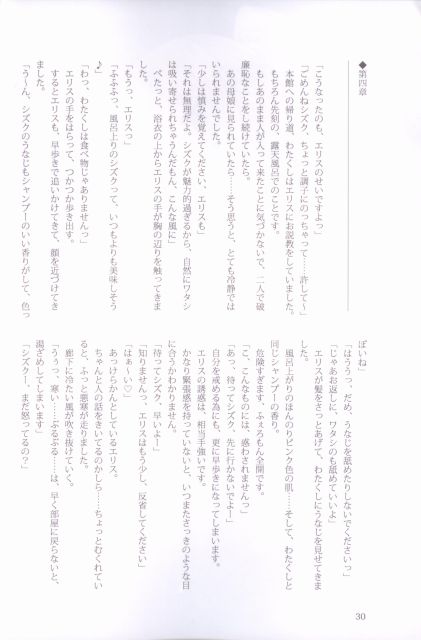 ◆第四章
「こうなったのも、エリスのせいですよっ」
「ごめんねシズク、ちょっと調子にのっちゃって……許して〜」
本館への帰り道、わたくしはエリスにお説教をしていました。
もちろん先刻の、露天風呂でのことです。
もしあのまま人が入って来たことに気づかないで、二人で破
廉恥なことをし続けていたら。
あの母娘に見られていたら……そう思うと、とても冷静では
いられませんでした。
「少しは慎みを覚えてください、エリスも」
「それは無理だよ。シズクが魅力的過ぎるから、自然にワタシ
は吸い寄せられちゃうんだもん、こんな風に」
ぺたっと、浴衣の上からエリスの手が胸の辺りを触ってきま
した。
「もうっ、エリスっ」
「ふふふっ、風呂上りのシズクって、いつもよりも美味しそう
♪」
「わっ、わたくしは食べ物じゃありませんっ」
エリスの手をはらって、つかつか歩き出す。
するとエリスも、早歩きで追いかけてきて、顔を近づけてき
ました。
「う〜ん、シズクのうなじもシャンプーのいい香りがして、色っ
ぽいね」
「はううっ、だめ、うなじを舐めたりしないでくださいっ」
「じゃあお返しに、ワタシのも舐めていいよ」
エリスが髪をさっとあげて、わたくしにうなじを見せてきま
した。
風呂上がりのほんのりピンク色の肌……そして、わたくしと
同じシャンプーの香り。
危険すぎます、ふぇろもん全開です。
「こ、こんなものには、惑わされませんっ」
「あっ、待ってシズク、先に行かないでよー」
自分を戒める為にも、更に早歩きになってしまいます。
エリスの誘惑は、相当手強いです。
かなり緊張感を持っていないと、いつまたさっきのような目
に合うかわかりません。
「待ってシズク、早いよー」
「知りませんっ、エリスはもう少し、反省してください」
「はぁ〜い♡」
あっけらかんとしているエリス。
ちゃんと人の話をきいているのかしら……ちょっとむくれてい
ると、ふっと悪寒が走りました。
廊下に冷たい風が吹き抜けていく。
「ううっ、寒い……ぶるぶる……は、早く部屋に戻らないと、
湯ざめしてしまいます」
「シズクー、まだ怒ってるの？」
30